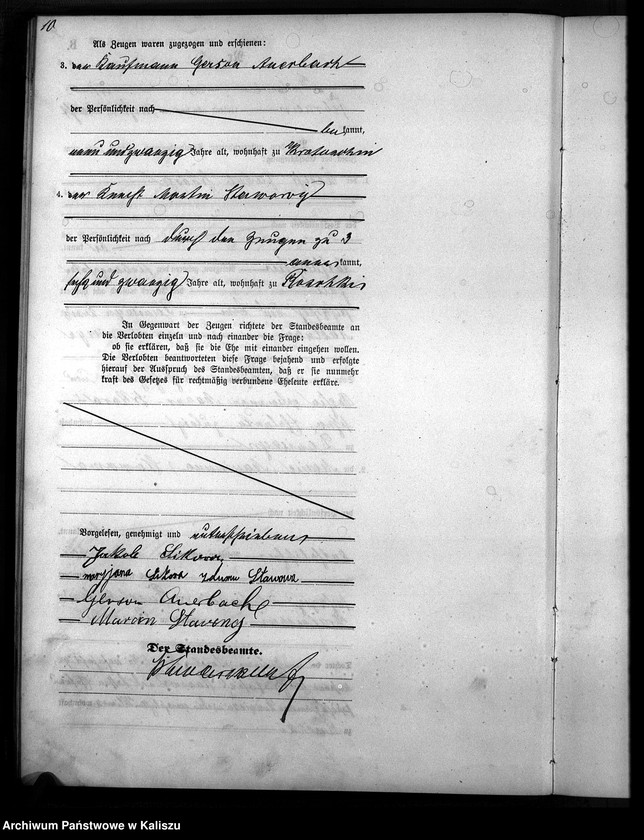 10
Als Zeugen waren zugezogen und erschienen:
3. der Kaufmann Gerson Auerbach
der Persönlichkeit nach
bekannt,
neun und zwanzig Jahre alt, wohnhaft zu Krotoschin
4. der Knecht Martin
der Persönlichkeit nach durch den Zeugen zu 3
anerkannt,
sechs und zwanzig Jahre alt, wohnhaft zu
In Gegenwart der Zeugen richtete der Standesbeamte an
die Verlobten einzeln und nach einander die Frage:
ob sie erklären, daß sie die Ehe mit einander eingehen wollen.
Die Verlobten beantworteten diese Frage bejahend und erfolgte
hierauf der Ausspruch des Standesbeamten, daß er sie nunmehr
kraft des Gesetzes für rechtmäßig verbundene Eheleute erkläre.
Vorgelesen, genehmigt und unterschrieben
Jakob Sikora
maryjana Sikora
Gerson Auerbach
Marcin
Der Standesbeamte.
Archiwum Państwowe w Kaliszu